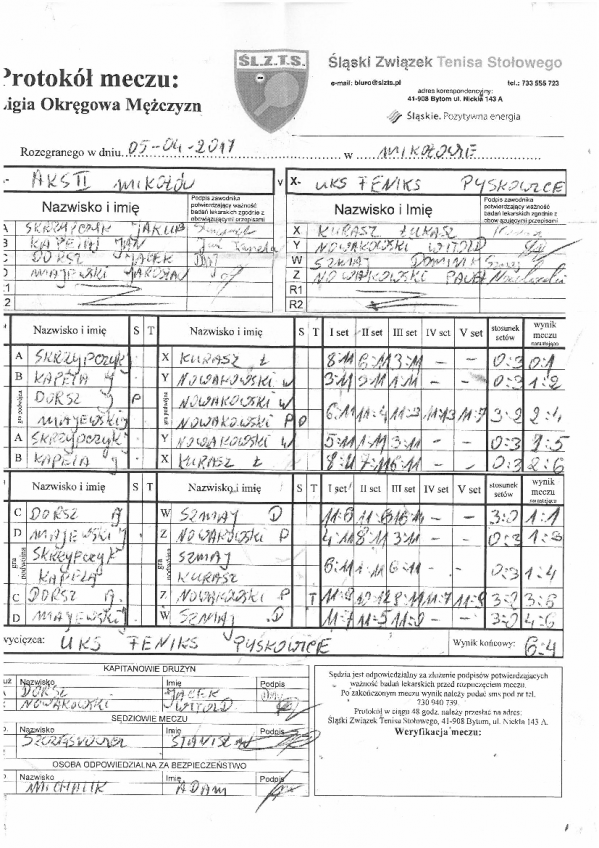 ŚL.Z.T.S.
Śląski Związek Tenisa Stołowego
Protokół meczu:
e-mail: biuro@slzts.pl tel.: 733 555 723
adres korespondencyjny:
41-908 Bytom ul. Nickla 143 A
Ligia Okręgowa Mężczyzn
Śląskie. Pozytywna energia
Rozegranego w dniu 05-04-2017 w MIKOŁOWIE
AKS II MIKOŁÓW V X- UKS FENIKS PYSKOWICE
Nazwisko i Imię Podpis zawodnika potwierdzający ważność badań lekarskich zgodnie z obowiązującymi przepisami Nazwisko i Imię Podpis zawodnika potwierdzający ważność badań lekarskich zgodnie z obowiązującymi przepisami
A SKRZYPCZYK JAKUB X KURASZ ŁUKASZ
B KAPELA JAN Y NOWAKOWSKI WITOLD
C DORSZ JACEK W SZMAJ DOMINIK
D MAJEWSKI JAROSŁAW Z NOWAKOWSKI PAWEŁ
R1
R2
Nazwisko i imię S T Nazwisko i imię S T I set II set III set IV set V set stosunek setów wynik meczu narastająco
A SKRZYPCZYK X KURASZ Ł 8:11 6:11 3:11 - - 0:3 0:1
B KAPELA J Y NOWAKOWSKI W 3:11 - - 0:3 1:2
gra podwójna DORSZ P gra podwójna NOWAKOWSKI W
MAJEWSKI J NOWAKOWSKI P 6:11 11:4 11:7 3:2 2:4
A SKRZYPCZYK Y NOWAKOWSKI W 5:11 3:11 - - 0:3 2:5
B KAPELA J X KURASZ Ł - - 0:3 2:6
Nazwisko i imię S T Nazwisko i imię S T I set II set III set IV set V set stosunek setów wynik meczu narastająco
C DORSZ W SZMAJ D - - 3:0 1:1
D MAJEWSKI J Z NOWAKOWSKI P 4:11 8:11 3:11 - - 1:3
gra podwójna SKRZYPCZYK gra podwójna SZMAJ
KAPELA KURASZ 6:11 6:11 - - 0:3 1:4
C DORSZ Z NOWAKOWSKI P T 11:7 11:9 3:2 3:6
D MAJEWSKI W SZMAJ D 11:7 11:5 - - 3:0 4:6
wycięzca: UKS FENIKS PYSKOWICE Wynik końcowy: 6:4
KAPITANOWIE DRUŻYN
Nazwisko Imię Podpis
DORSZ JACEK
NOWAKOWSKI WITOLD
SĘDZIOWIE MECZU
Nazwisko Imię Podpis
OSOBA ODPOWIEDZIALNA ZA BEZPIECZEŃSTWO
Nazwisko Imię Podpis
MICHALIK ADAM
Sędzia jest odpowiedzialny za złożenie podpisów potwierdzających
ważność badań lekarskich przed rozpoczęciem meczu.
Po zakończonym meczu wynik należy podać sms pod nr tel.
730 940 739.
Protokół w ciągu 48 godz. należy przesłać na adres:
Śląski Związek Tenisa Stołowego, 41-908 Bytom, ul. Nickla 143 A.
Weryfikacja meczu: